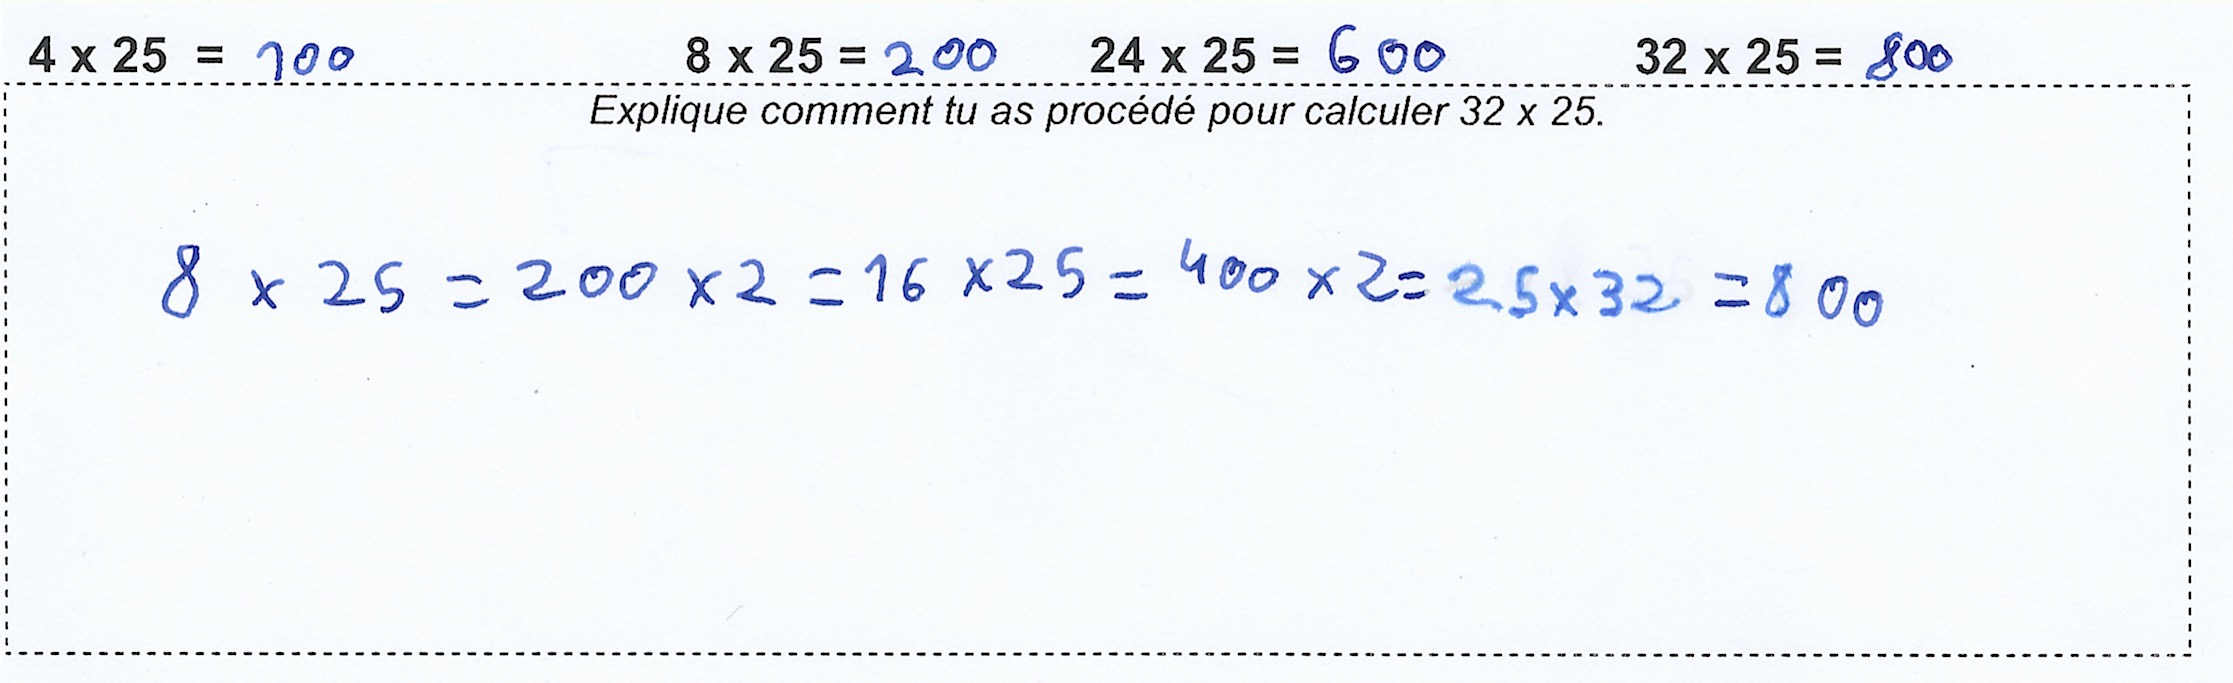 4 x 25 = 100 8 x 25 = 200 24 x 25 = 600 32 x 25 = 800
Explique comment tu as procédé pour calculer 32 x 25.
8 x 25 = 200 x 2 = 16 x 25 = 400 x 2 = 25 x 32 = 800